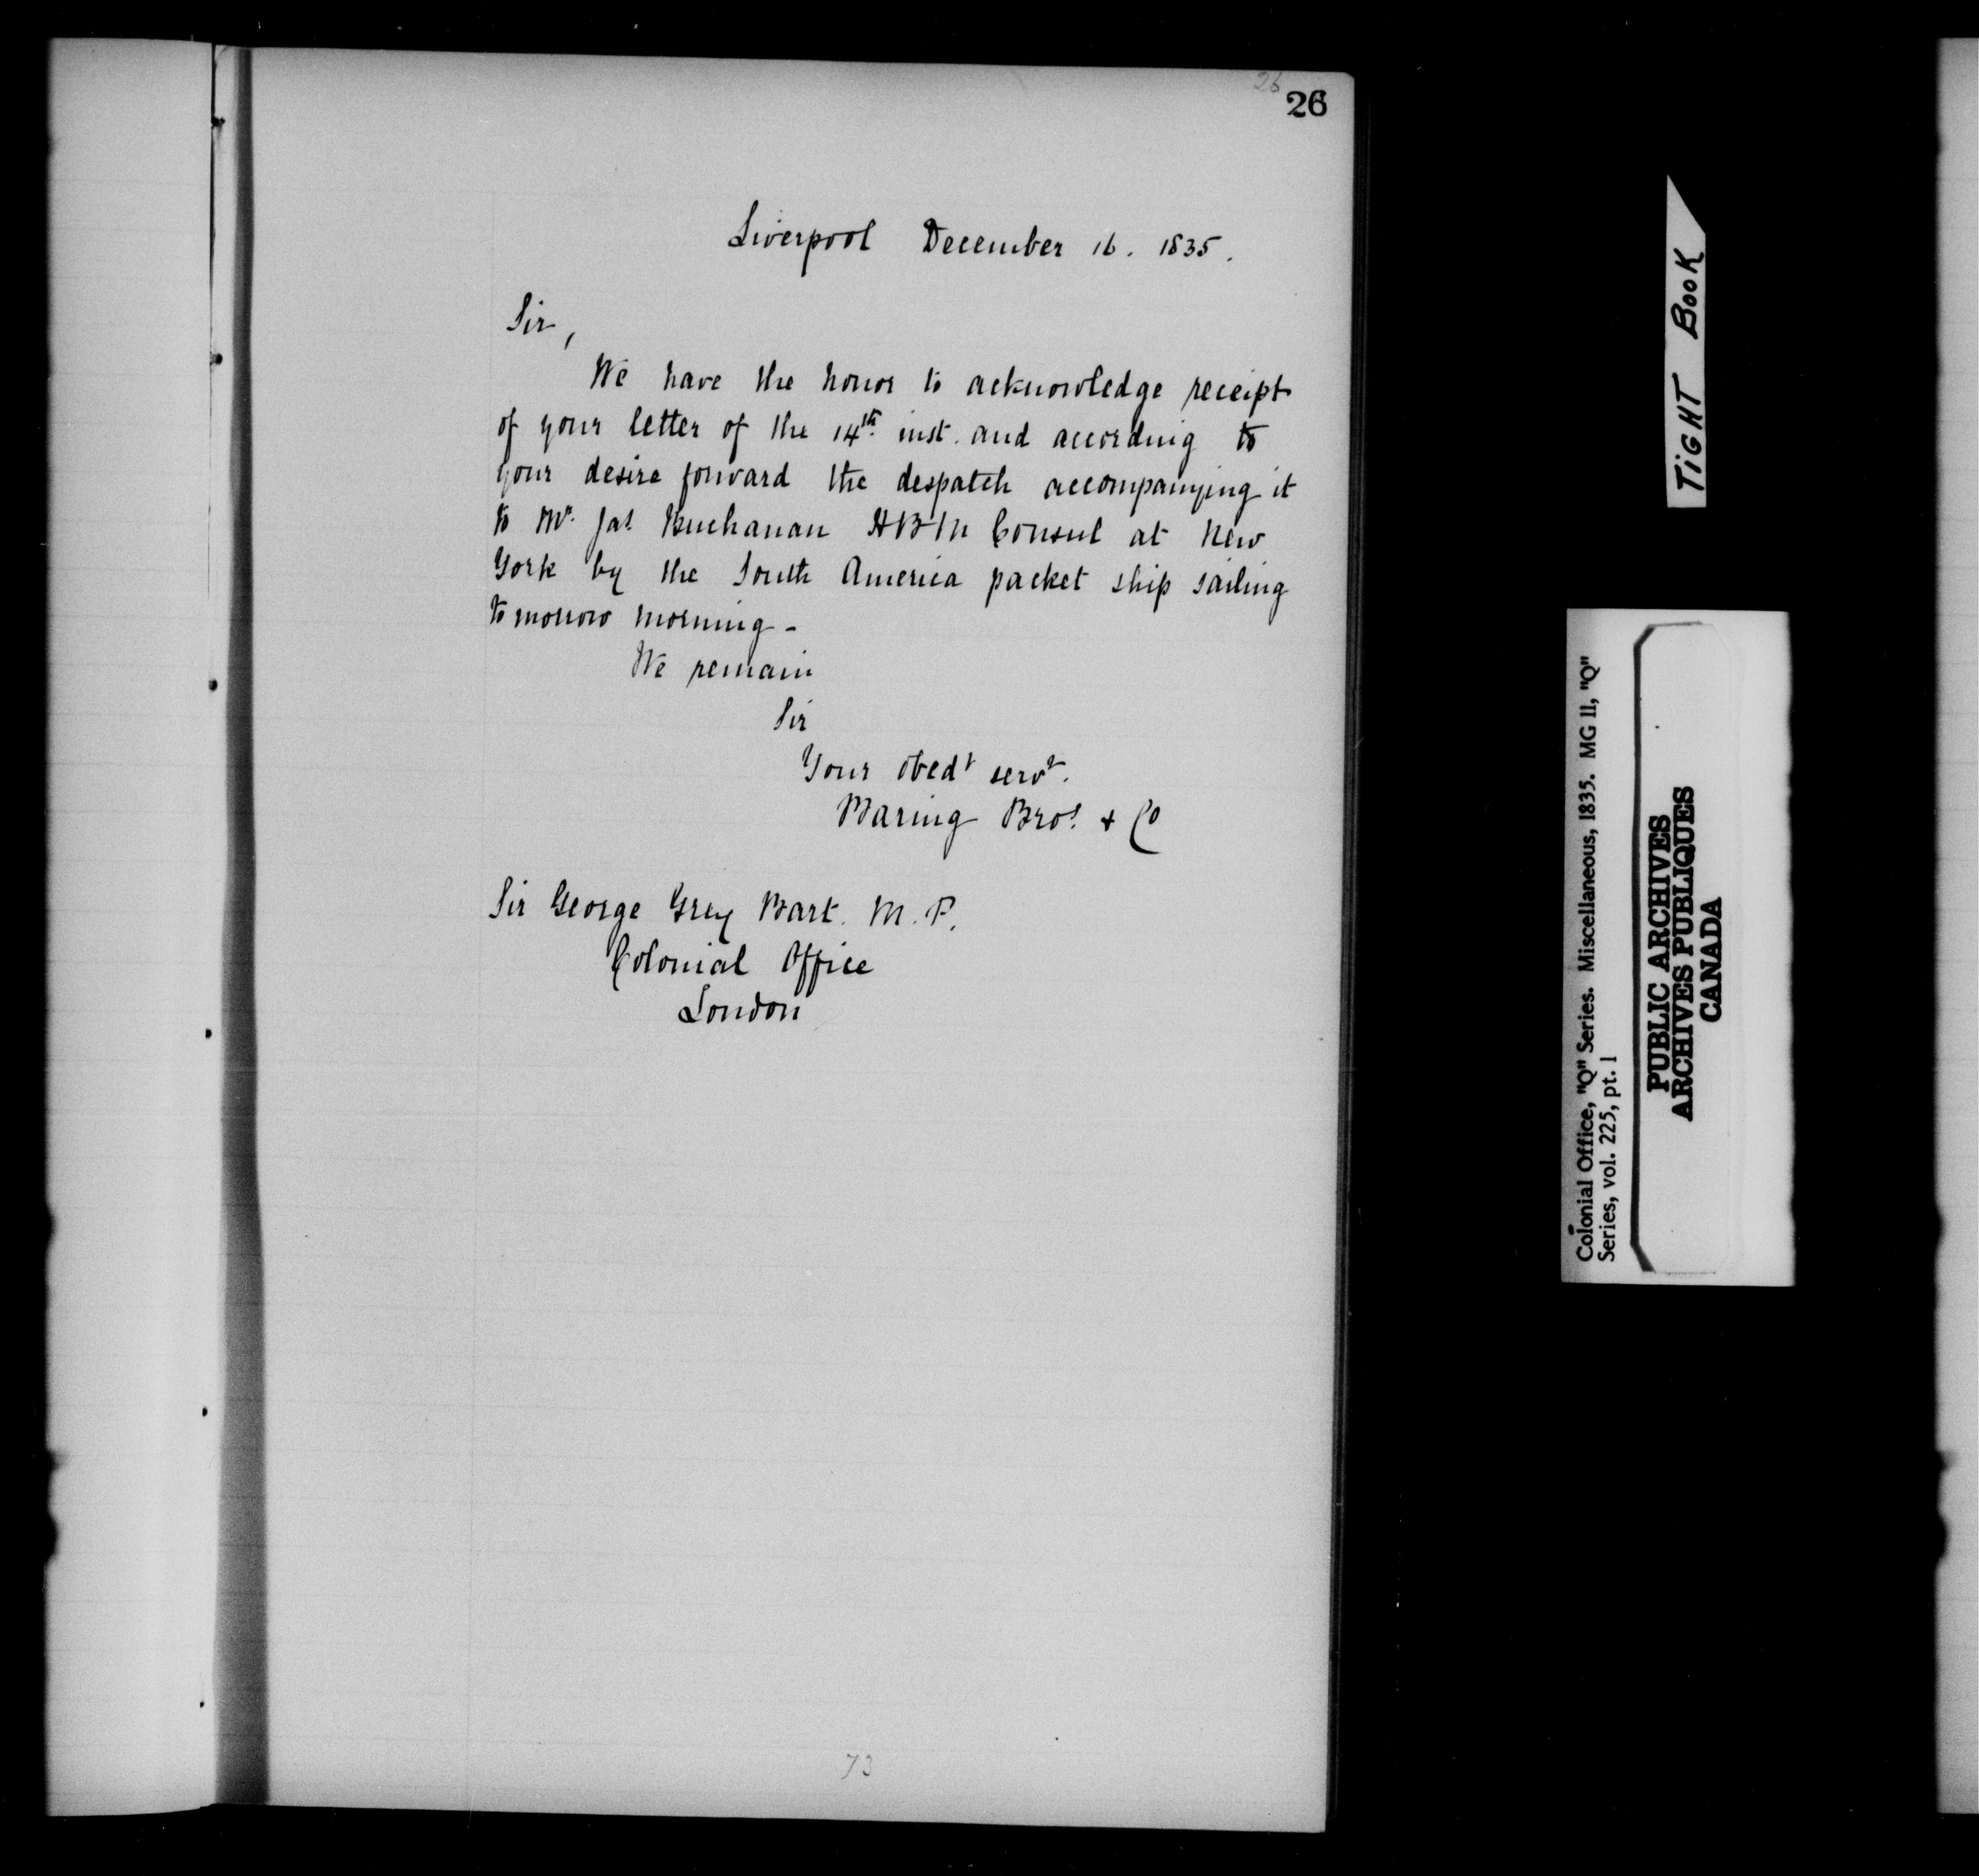 26
26
Liverpool December 16. 1835.
Sir,
We have the honor to acknowledge receipt
of your letter of the 14th inst. and according to
your desire forward the despatch accompanying it
to Mr. Jas. Buchanan HBM Consul at New
York by the South America packet ship sailing
to morrow morning -
We remain
Sir
Your obedt servt.
Baring Bros. & Co
Sir George Grey Bart. M.P.
Colonial Office
London
73
TIGHT BOOK
Colonial Office, "Q" Series. Miscellaneous, 1835. MG 11, "Q"
Series, vol. 225, pt. 1
PUBLIC ARCHIVES
ARCHIVES PUBLIQUES
CANADA